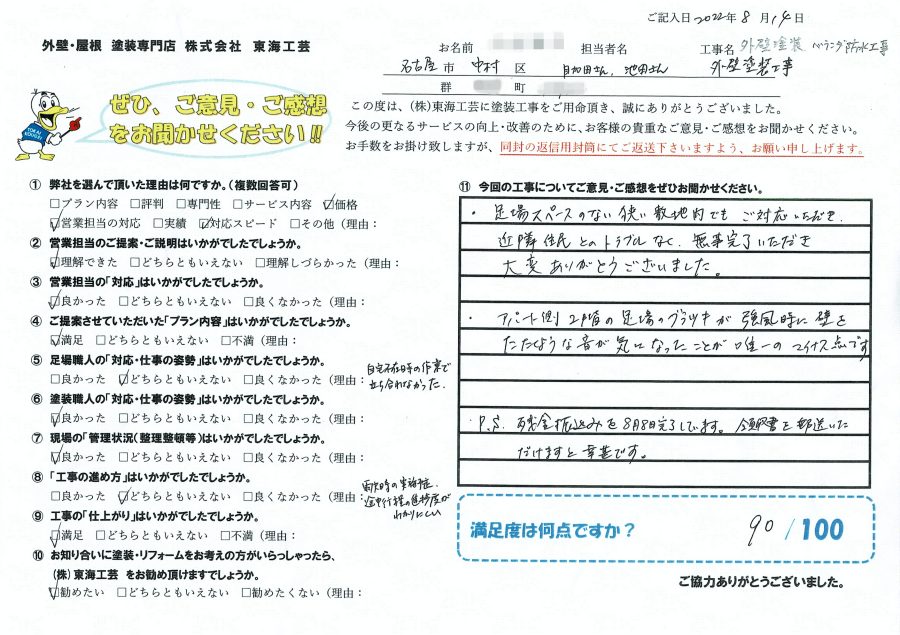 ご記入日 2022年 8月 14日
外壁・屋根 塗装専門店 株式会社 東海工芸
お名前 担当者名 工事名 外壁塗装 ベランダ防水工事
名古屋 市 中村 区 池田さん 外壁塗装工事
群 町
ぜひ、ご意見・ご感想
をお聞かせください!!
この度は、(株)東海工芸に塗装工事をご用命頂き、誠にありがとうございました。
今後の更なるサービスの向上・改善のために、お客様の貴重なご意見・ご感想をお聞かせください。
お手数をお掛け致しますが、同封の返信用封筒にてご返送下さいますよう、お願い申し上げます。
① 弊社を選んで頂いた理由は何ですか。(複数回答可)
□プラン内容 □評判 □専門性 □サービス内容 ☑価格
☑営業担当の対応 □実績 ☑対応スピード □その他(理由:
② 営業担当のご提案・ご説明はいかがでしたでしょうか。
☑理解できた □どちらともいえない □理解しづらかった(理由:
③ 営業担当の「対応」はいかがでしたでしょうか。
☑良かった □どちらともいえない □良くなかった(理由:
④ ご提案させていただいた「プラン内容」はいかがでしたでしょうか。
☑満足 □どちらともいえない □不満(理由:
⑤ 足場職人の「対応・仕事の姿勢」はいかがでしたでしょうか。
□良かった ☑どちらともいえない □良くなかった(理由: 自宅不在時の作業で
立ち会れなかった.
⑥ 塗装職人の「対応・仕事の姿勢」はいかがでしたでしょうか。
☑良かった □どちらともいえない □良くなかった(理由:
⑦ 現場の「管理状況(整理整頓等)はいかがでしたでしょうか。
☑良かった □どちらともいえない □良くなかった(理由:
⑧ 「工事の進め方」はいかがでしたでしょうか。
□良かった ☑どちらともいえない □良くなかった(理由: 雨天時の実施可否.
途中行程の進捗度が
わかりにくい
⑨ 工事の「仕上がり」はいかがでしたでしょうか。
☑満足 □どちらともいえない □不満(理由:
⑩ お知り合いに塗装・リフォームをお考えの方がいらっしゃったら、
(株)東海工芸 をお勧め頂けますでしょうか。
☑勧めたい □どちらともいえない □勧めたくない(理由:
⑪ 今回の工事についてご意見・ご感想をぜひお聞かせください。
・足場スペースのない狭い敷地内でもご対応いただき、
近隣住民とのトラブルなく、無事完了いただき
大変ありがとうございました。
・アパート側 2階の足場のグラツキが強風時に壁を
たたくような音が気になったことが唯一のマイナス点です
・P.S. 残金振込みを8月8日完了しています。領収書を郵送いた
だけますと幸甚です。
満足度は何点ですか? 90/100
ご協力ありがとうございました。